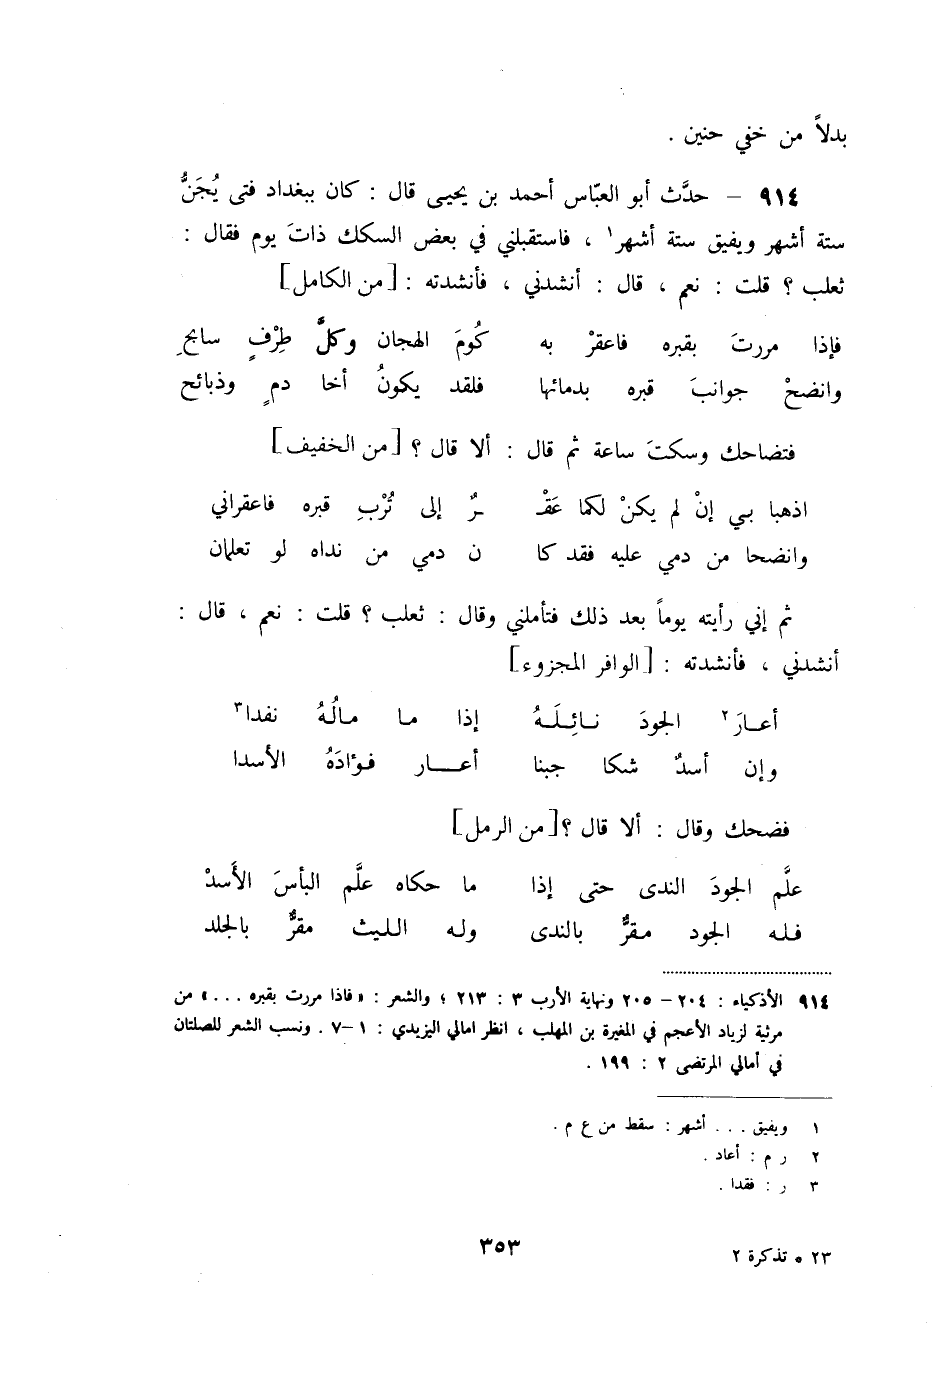 بدلاً من خفي حنين .
٩١٤ – حدَّث أبو العبّاس أحمد بن يحيى قال : كان ببغداد فتى يُجَنُّ
ستة أشهر ويفيق ستة أشهر١ ، فاستقبلني في بعض السكك ذاتَ يوم فقال :
ثعلب ؟ قلت : نعم ، قال : أنشدني ، فأنشدته : [من الكامل]
فإذا مررتَ بقبره فاعقرْ به كُومَ الهجان وكلَّ طِرْفٍ سابحِ
وانضحْ جوانبَ قبره بدمائها فلقد يكونُ أخا دمٍ وذبائح
فتضاحك وسكتَ ساعة ثم قال : ألا قال ؟ [من الخفيف]
اذهبا بي إنْ لم يكنْ لكما عَقْـ ـرٌ إلى تُرْبِ قبره فاعقراني
وانضحا من دمي عليه فقد كا ن دمي من نداه لو تعلمان
ثم إني رأيته يوماً بعد ذلك فتأملني وقال : ثعلب ؟ قلت : نعم ، قال :
أنشدني ، فأنشدته : [الوافر المجزوء]
أعارَ٢ الجودَ نائِلَهُ إذا ما مالُهُ نفدا٣
وإن أسدٌ شكا جبنا أعـــار فؤادَهُ الأسدا
فضحك وقال : ألا قال ؟ [من الرمل]
علَّم الجودَ الندى حتى إذا ما حكاه علَّم البأسَ الأَسدْ
فله الجود مقرٌّ بالندى وله الليث مقرٌّ بالجلد
٩١٤ الأذكياء : ٢٠٤ – ٢٠٥ ونهاية الأرب ٣ : ٢١٣ ؛ والشعر : «فاذا مررت بقبره ...» من
مرثية لزياد الأعجم في المغيرة بن المهلب ، انظر امالي اليزيدي : ١–٧ . ونسب الشعر للصلتان
في أمالي المرتضى ٢ : ١٩٩ .
١ ويفيق ... أشهر : سقط من ع م .
٢ ر م : أعاد .
٣ ر : فقدا .
٢٣ * تذكرة ٢
٣٥٣